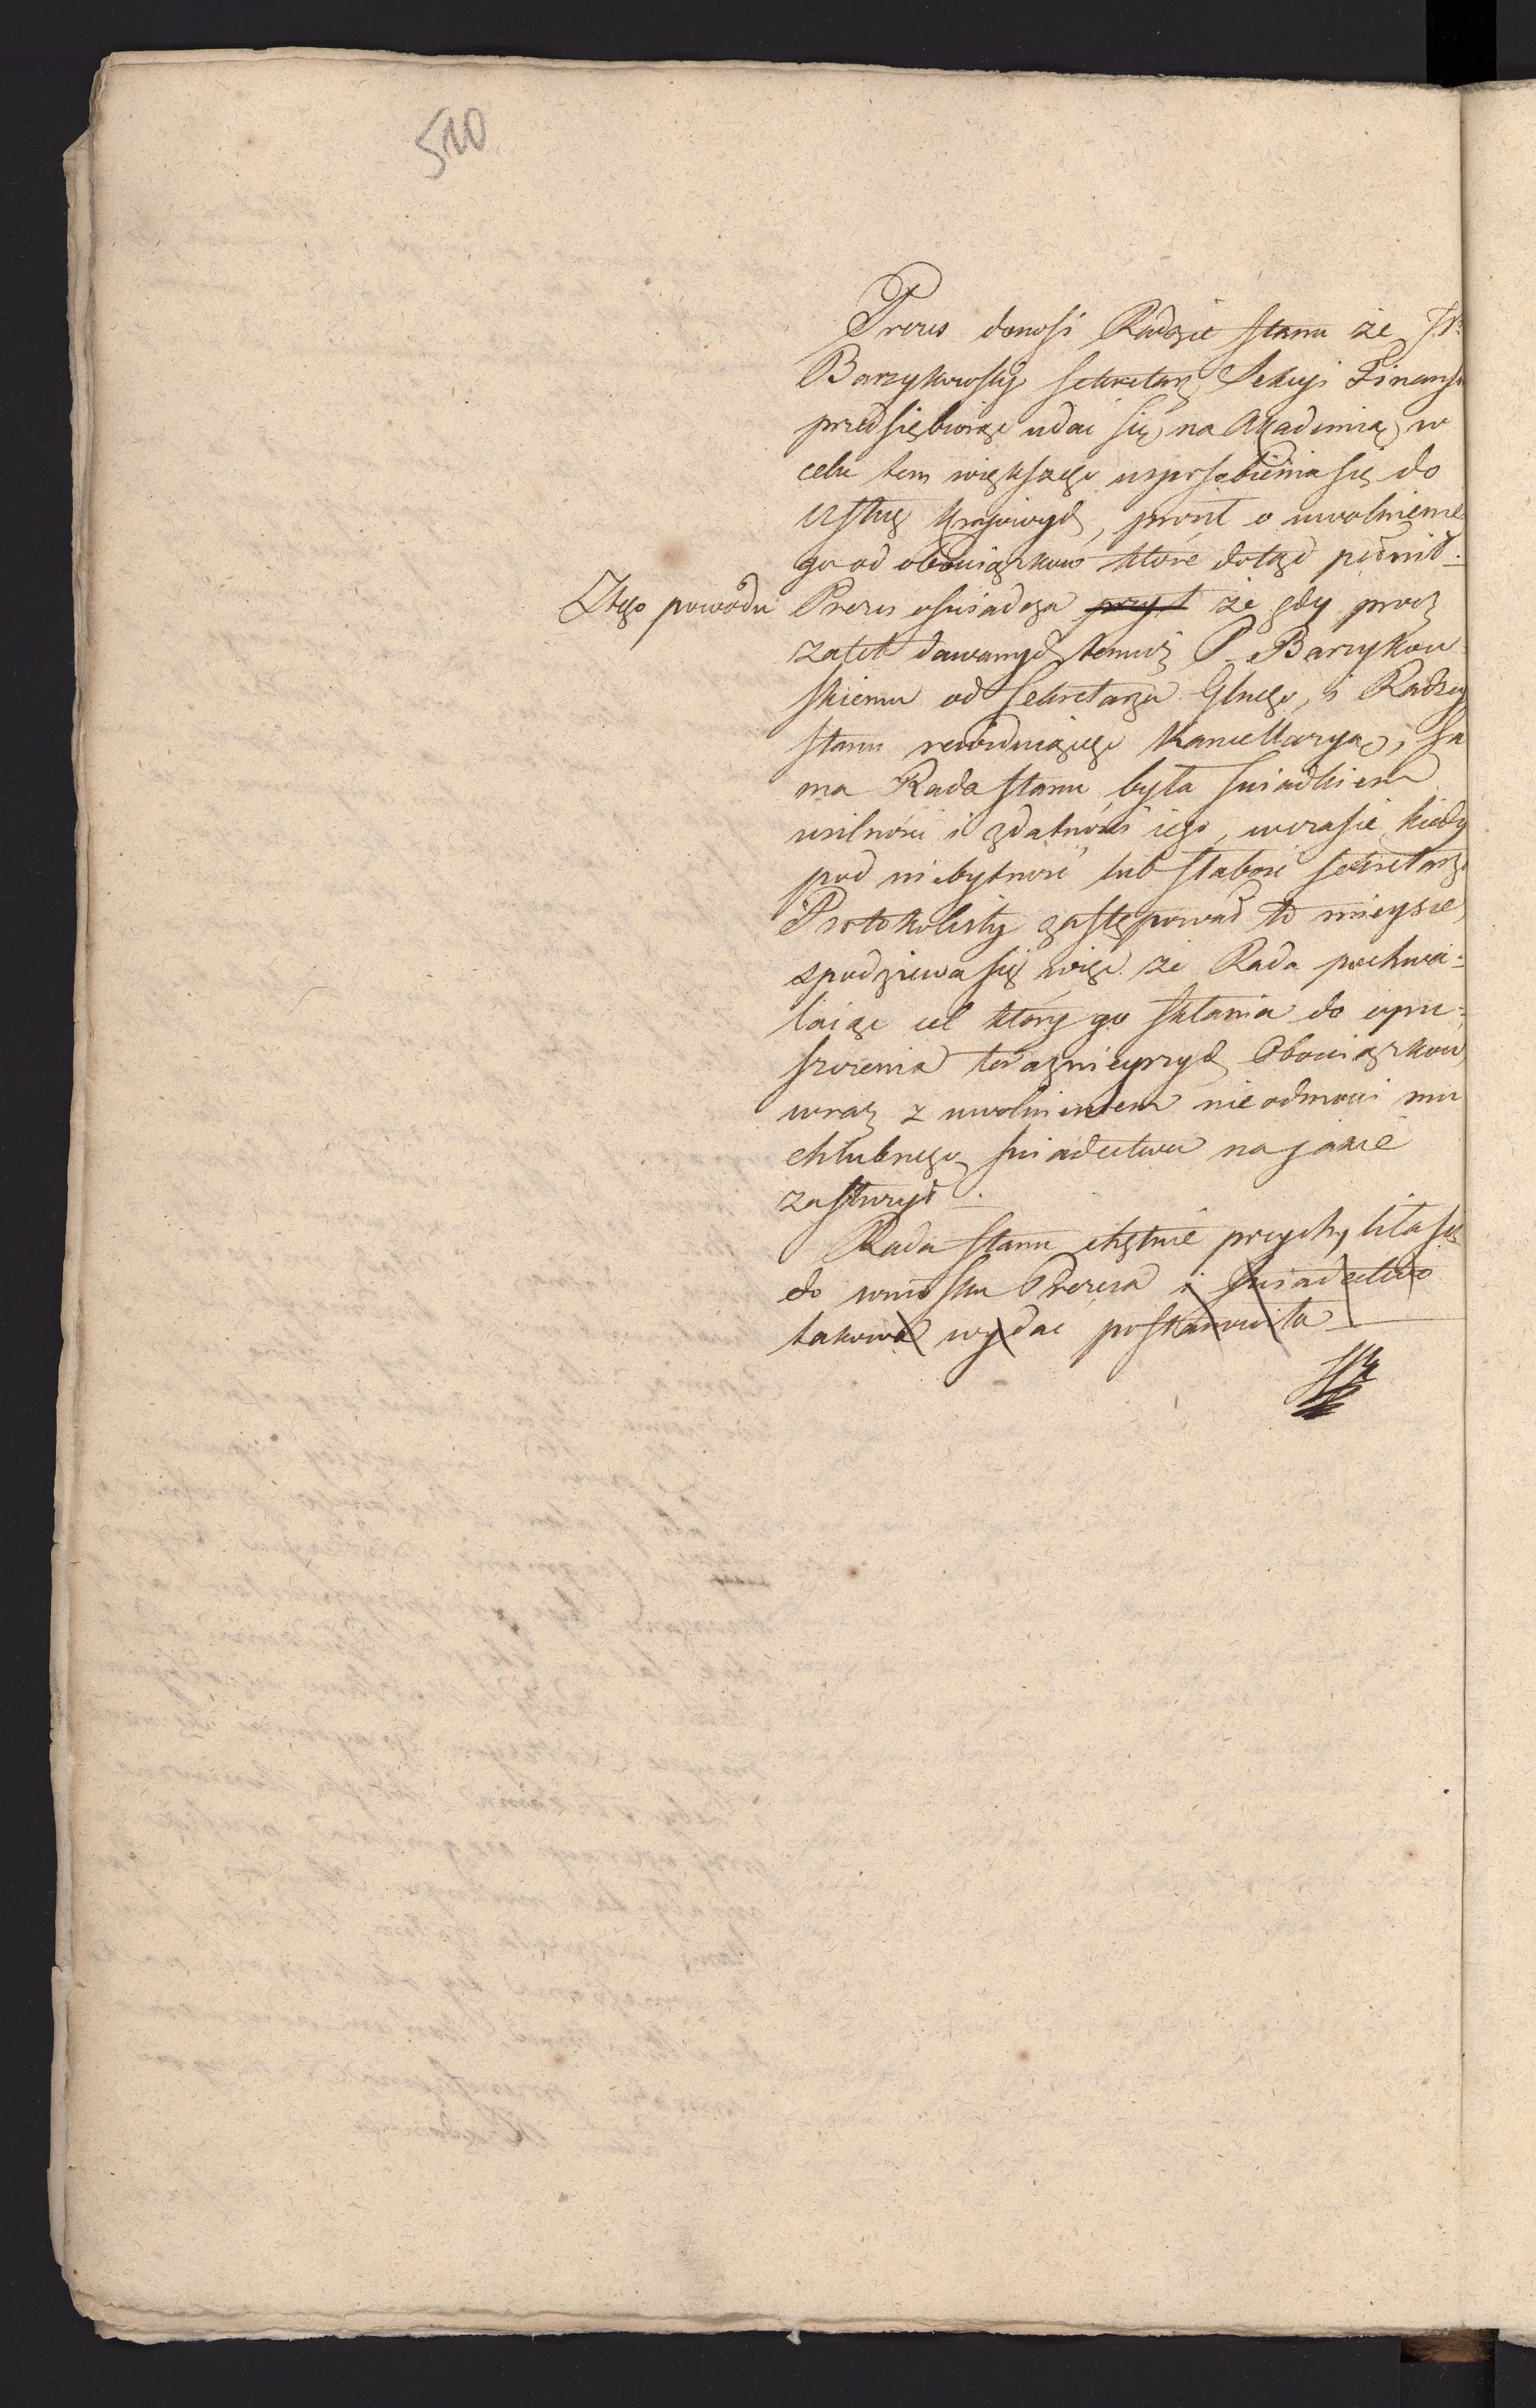 510
Prezes donosi Radzie stanu że Jr.
Barzykowski sekretarz Sekcyi Finans
przedsiębiorąc udać się na Akademią w
celu tem większego usposobienia się do
usług kraiowych, prosił o uwolnienie
go od obowiązkow które dotąd pełnił.
Z tego powodu Prezes oświadcza przyt że gdy procz
zalet dawanych temuż P. Barzykow
skiemu od sekretarza Głnego, i Radzcy
stanu
Kancellaryą, sa
ma Rada stanu była świadkiem
usilności i zdatności iego, w czasie kiedy
pod niebytność lub słabość sekretarza
Protokolisty zastępował to mieysce,
spodziewa się więc że Rada pochwa-
laiąc cel który go skłania do opu-
szczenia teraznieyszych Obowiązkow
wraz z uwolnieniem nie odmowi mu
chlubnego świadectwa na jakie
zasłużył.
Rada stanu chętnie przychyliła się
do wniosku Prezesa i świadectwo
takowe wydać postanowiła